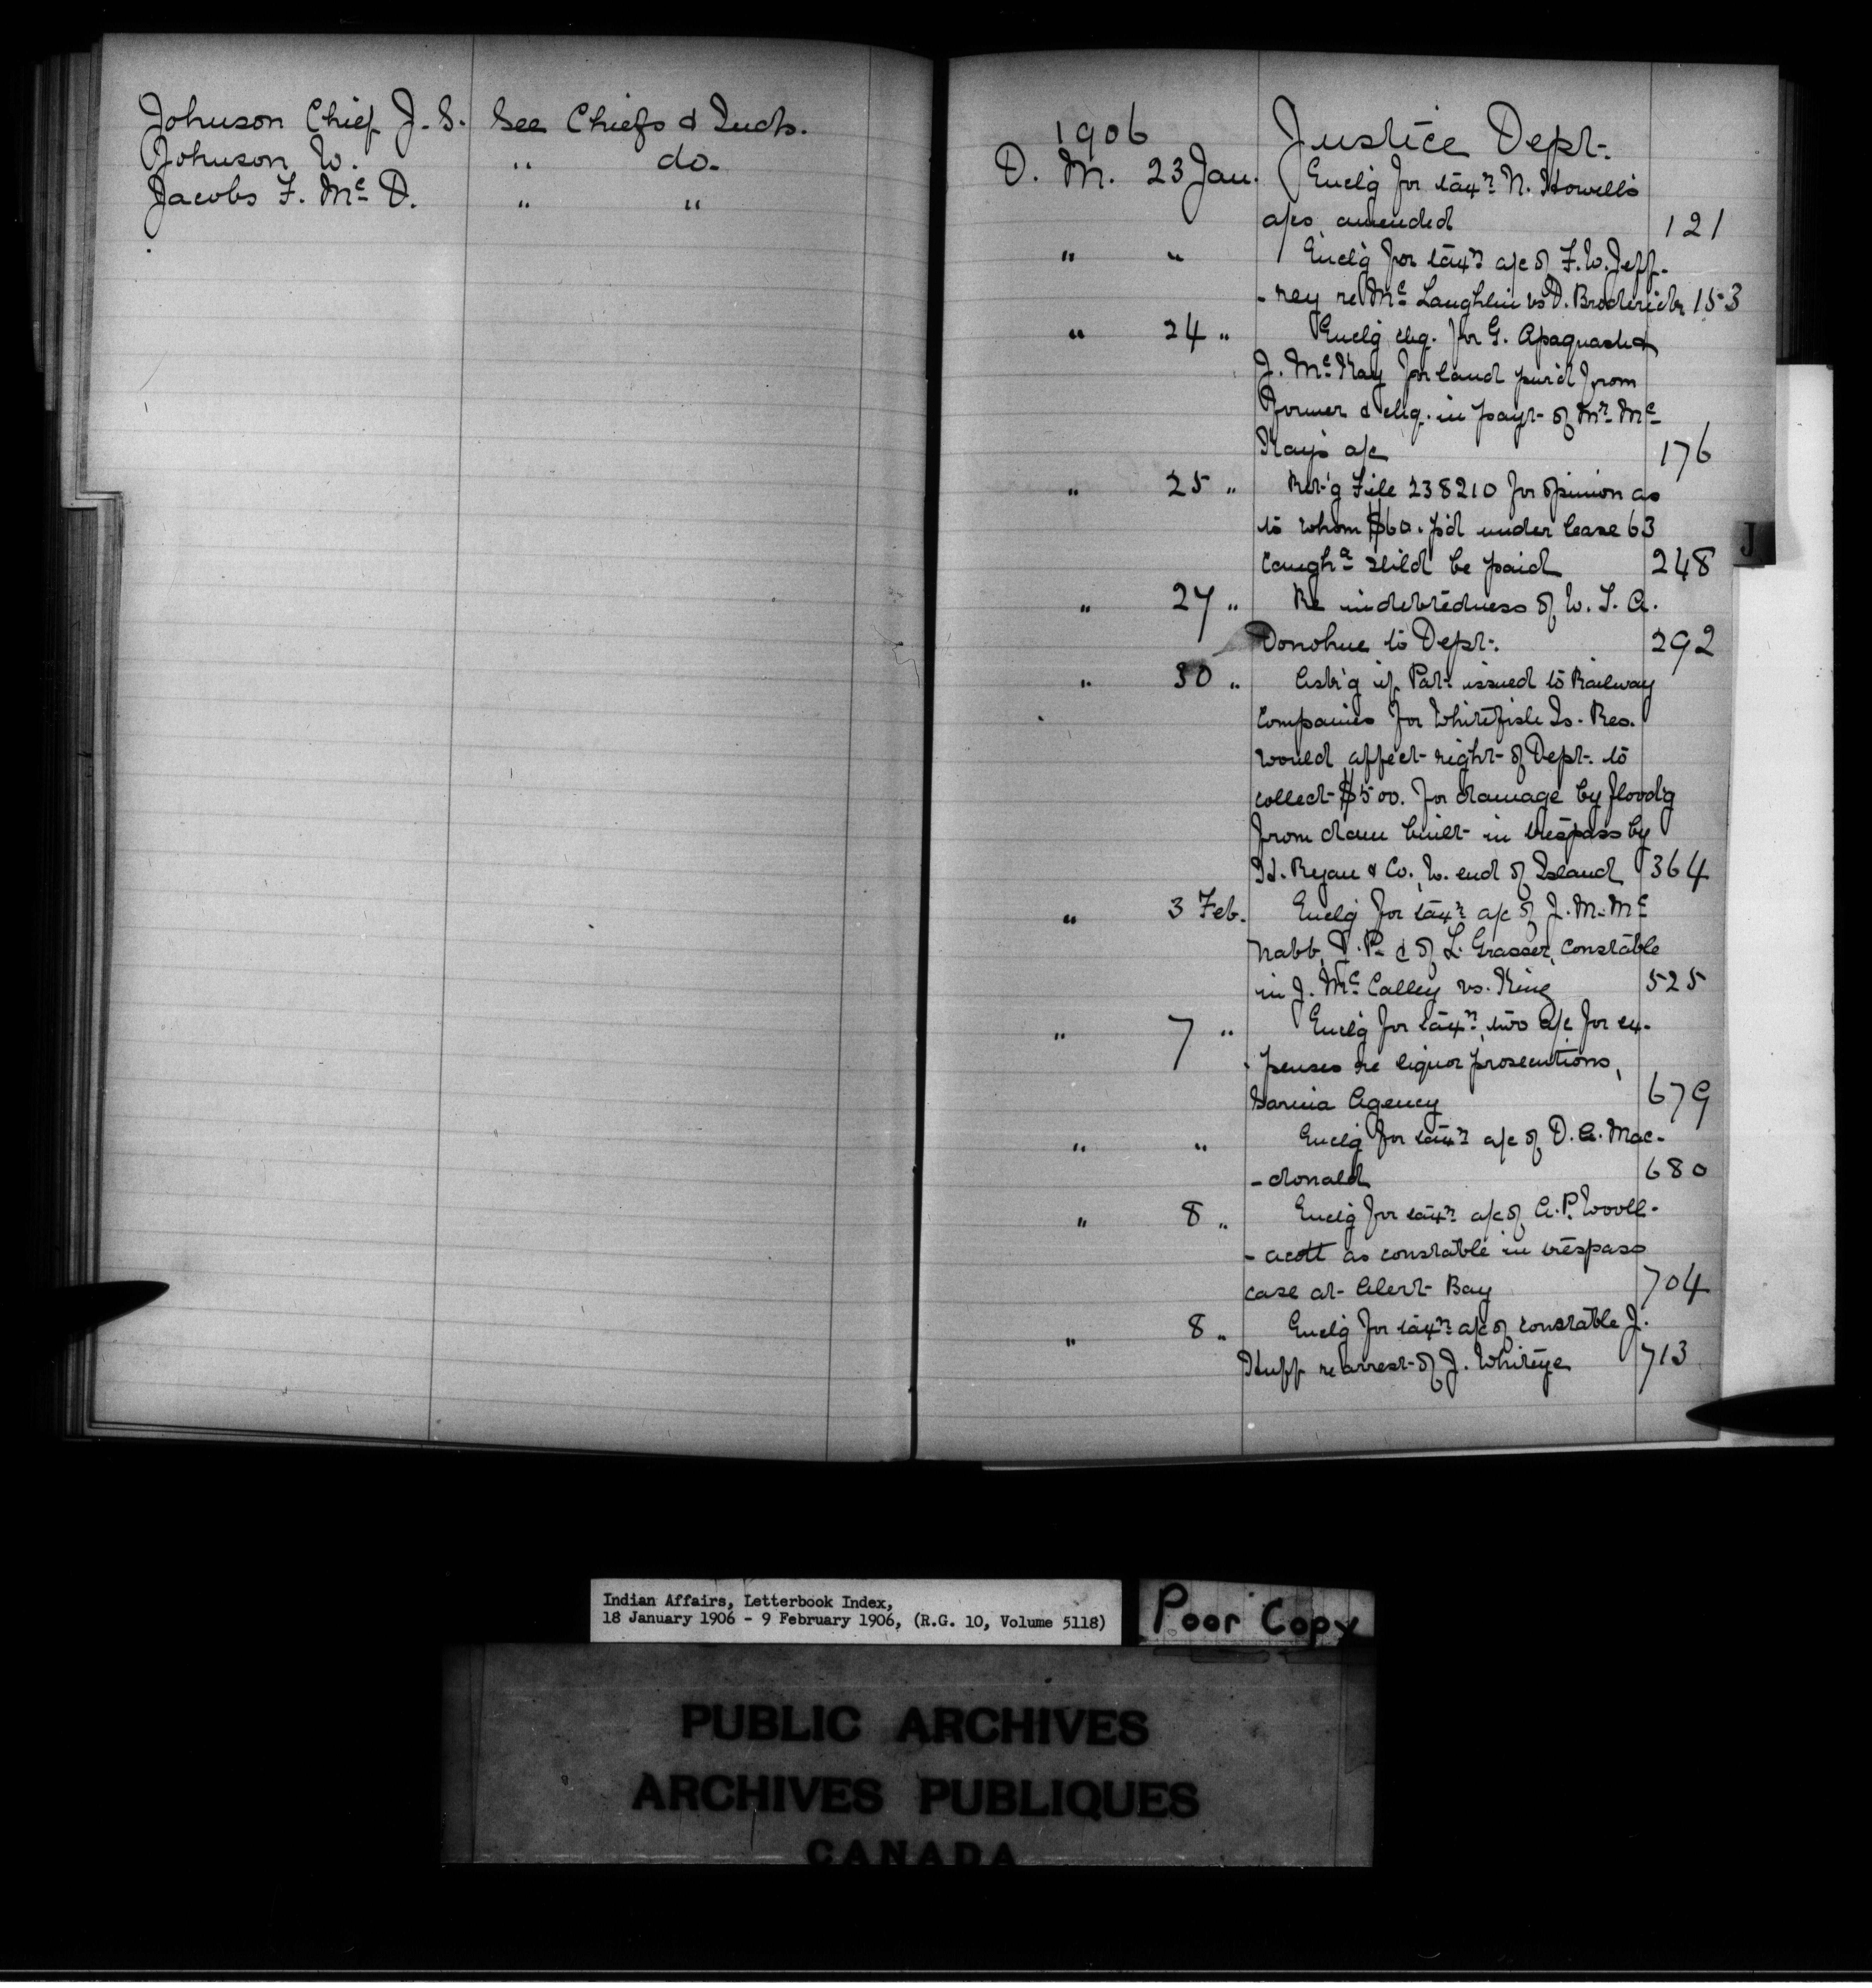 Johnson Chief J. S. See Chiefs & Inds.
Johnson W. " do.
Jacobs F. Mc D. " "
1906 Justice Dept.
D. M. 23 Jan. Encl'g for taxn N. Howell's
a/cs amended 121
" " Encl'g for taxn a/c of F. W. Jeff-
-rey re Mc Laughlin vs D. Broderick 153
" 24 " Encl'g chq. for G. Apaquash &
J. Mc Kay for land pur'd from
former & chq. in payt of Mr Mc
Kay's a/c 176
" 25 " Ret'g File 238210 for opinion as
to whom $60. p'd under lease 63
Caugha shld be paid 248
" 27 " Re indebtedness of W. J. A.
Donohue to Dept. 292
" 30 " Ask'g if Pat. issued to Railway
Companies for Whitefish Is. Res.
would affect right of Dept. to
collect $500. for damage by flood'g
from dam built in trespass by
H. Ryan & Co. W. end of Island 364
" 3 Feb. Encl'g for taxn a/c of J. M. Mc
Nabb, P. & of L. Grasser, Constable
in J. Mc Calley vs. King 525
" 7 " Encl'g for taxn two a/c for ex-
-penses re liquor prosecutions,
Sarnia Agency 679
" " Encl'g for taxn a/c of D. A. Mac-
-donald 680
" 8 " Encl'g for taxn a/c of A. P. Wooll-
-acott as constable in trespass
case at Alert Bay 704
" 8 " Encl'g for taxn a/c of constable J.
Huff re arrest of J. Whiteye 713
J
Indian Affairs, Letterbook Index,
18 January 1906 - 9 February 1906, (R.G. 10, Volume 5118)
Poor Copy
PUBLIC ARCHIVES
ARCHIVES PUBLIQUES
CANADA